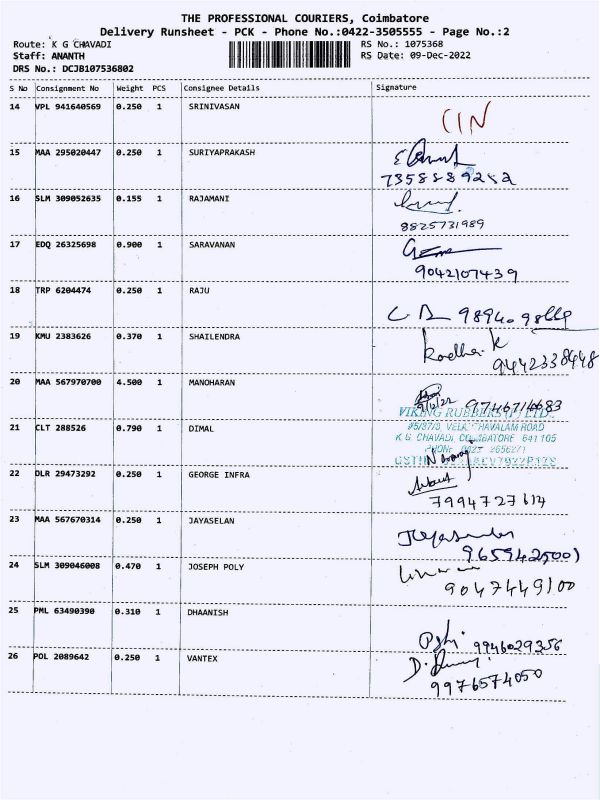 THE PROFESSIONAL COURIERS, Coimbatore
Delivery Runsheet - PCK - Phone No.:0422-3505555 - Page No.:2
Route: K G CHAVADI RS No.: 1075368
Staff: ANANTH RS Date: 09-Dec-2022
DRS No.: DCJB107536802
S No Consignment No Weight PCS Consignee Details Signature
14 VPL 941640569 0.250 1 SRINIVASAN
CIN
15 MAA 295020447 0.250 1 SURIYAPRAKASH
7358889282
16 SLM 309052635 0.155 1 RAJAMANI
8825731989
17 EDQ 26325698 0.900 1 SARAVANAN
9042107439
18 TRP 6204474 0.250 1 RAJU
19 KMU 2383626 0.370 1 SHAILENDRA
9442338448
20 MAA 567970700 4.500 1 MANOHARAN
9746716683
VIKING RUBBERS (P) LTD.
21 CLT 288526 0.790 1 DIMAL
K.G. CHAVADI, COIMBATORE 641 105
22 DLR 29473292 0.250 1 GEORGE INFRA
7994727614
23 MAA 567670314 0.250 1 JAYASELAN
24 SLM 309046008 0.470 1 JOSEPH POLY
9047449100
25 PML 63490390 0.310 1 DHAANISH
9946029356
26 POL 2089642 0.250 1 VANTEX
9976574050